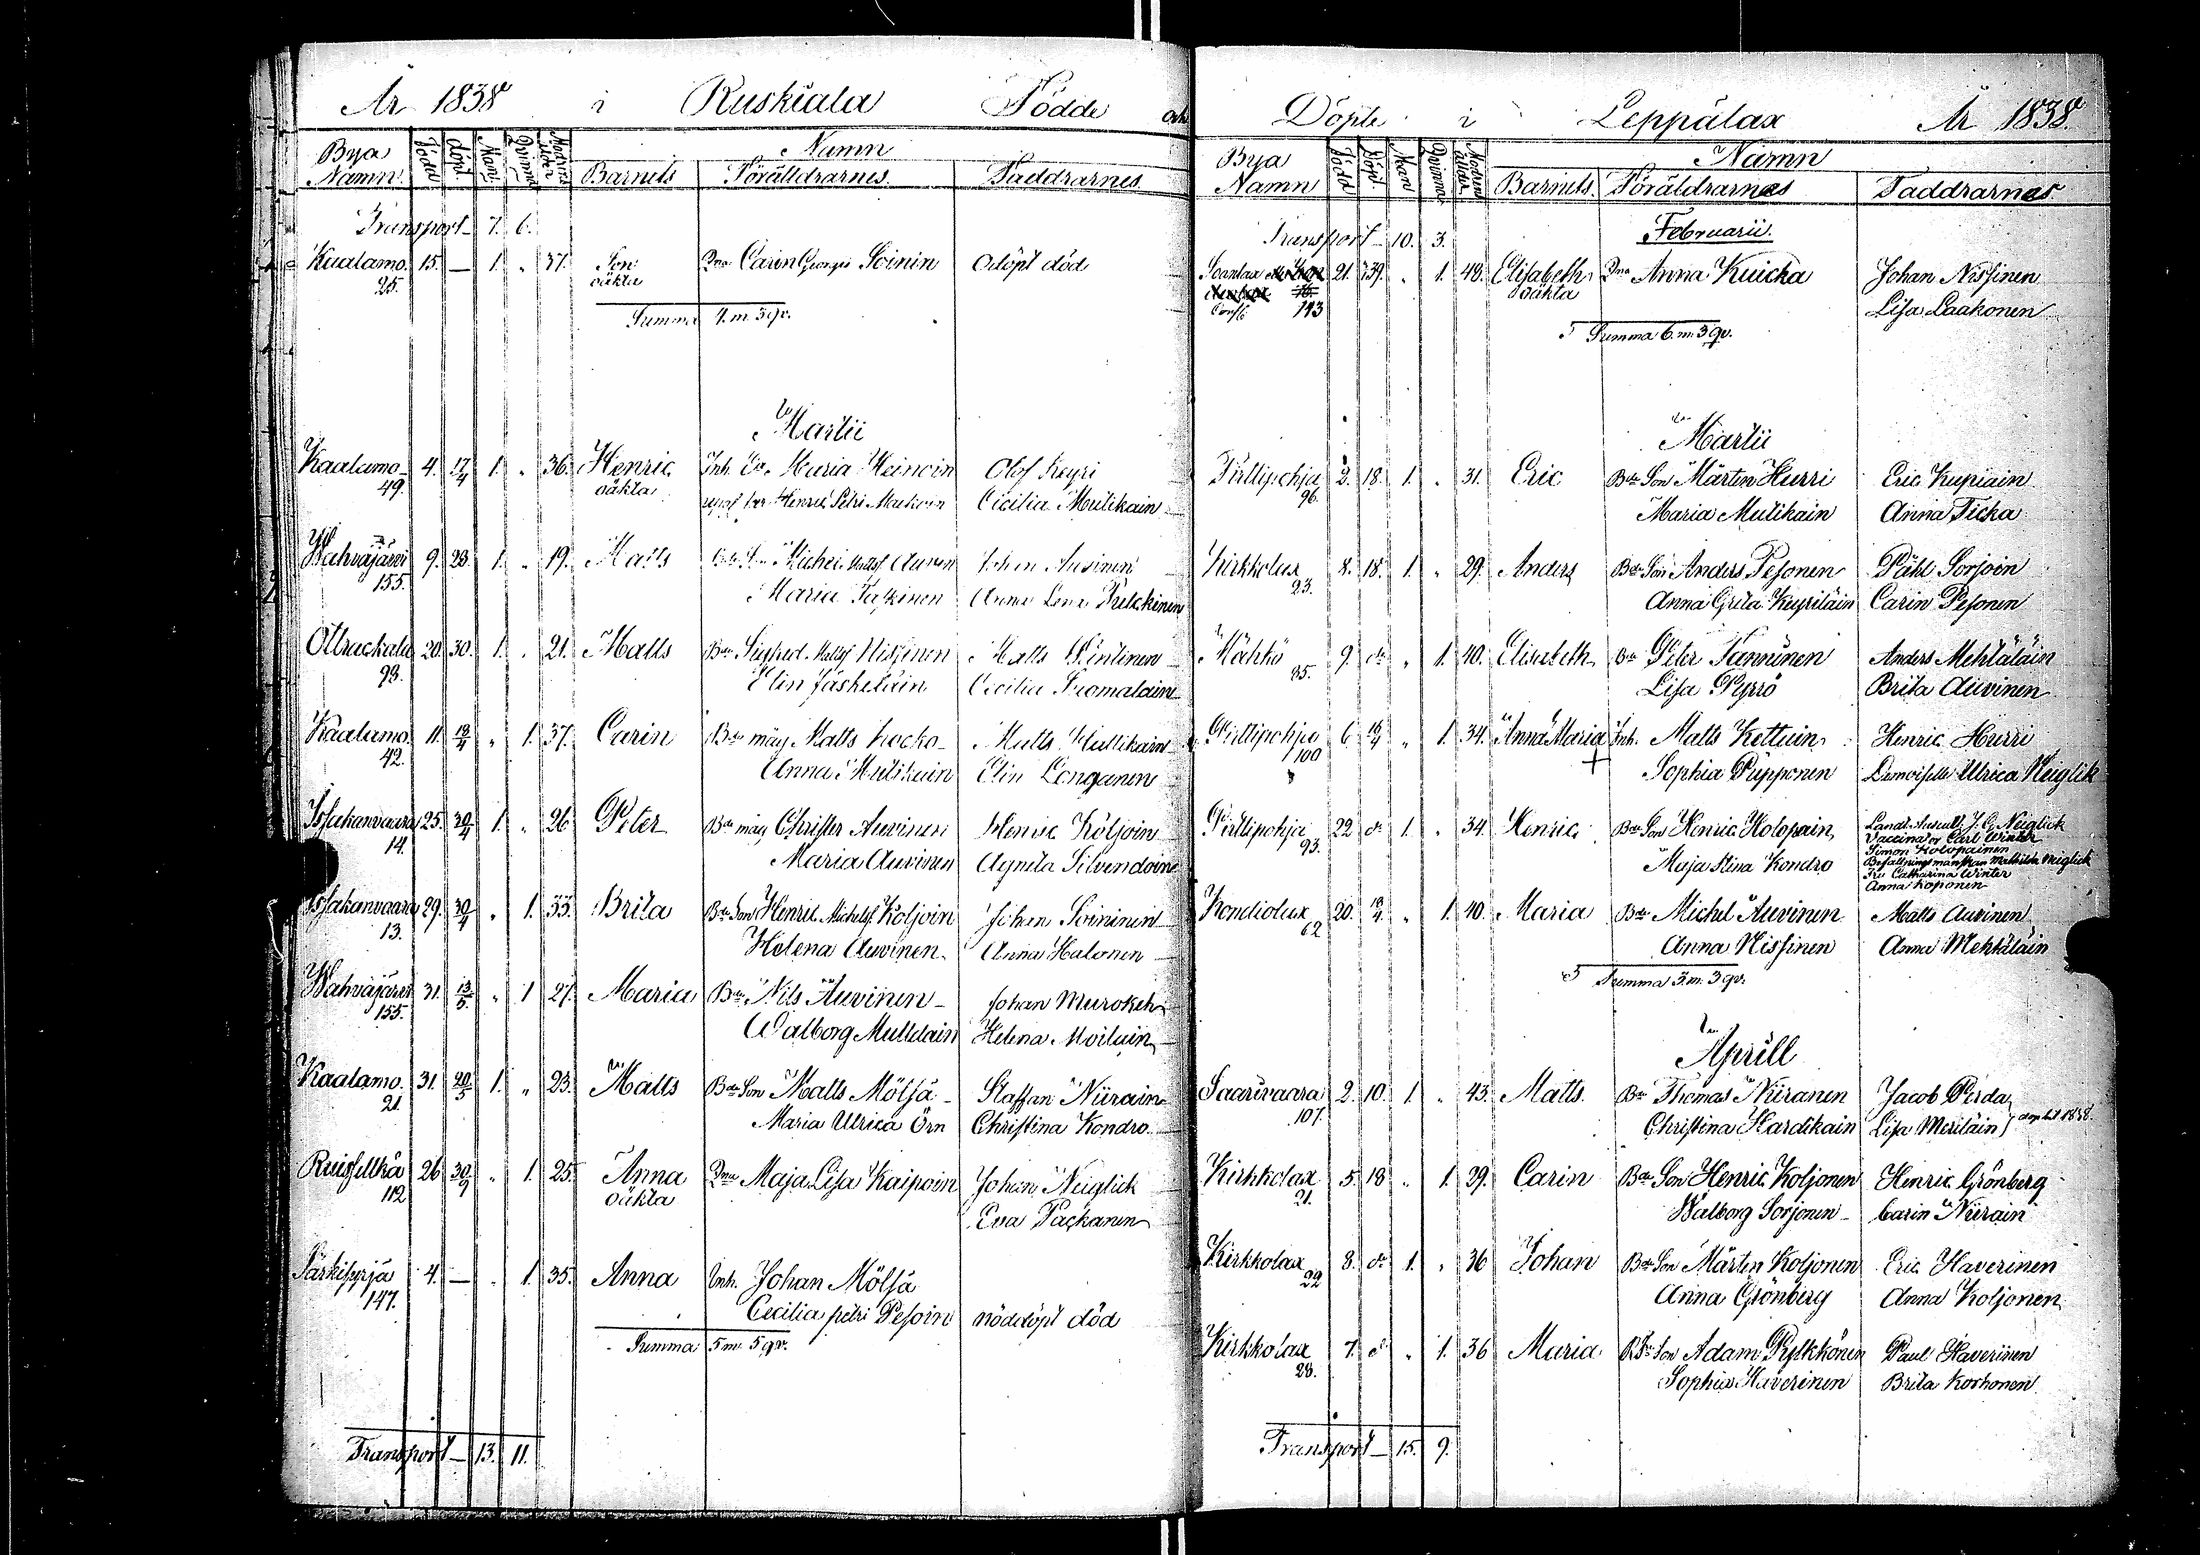 År 1838 i Ruskiala Födde och
Bya Namn. Född döpt. Mank. Qvinna Modrens ålder Namn
Barnets Föräldrarnes. Faddrarnes
Transport 7. 6.
Kaalamo. 15. — 1. „ 37. Son Qna Carin Georgii Soinin odöpt död
25. oäkta
Summa 4. m. 3 qv.
Martii
Kaalamo 4. 17/4 1. „ 36. Henric Inh. Maria Heinoin Olof Keyri
49. oäkta Henric Petri Cicilia Mulikain
Wahvajärvi 9. 23. 1. „ 19. Matts Michel Auvinen Johan Auvinen
155. Maria Anna Lena
Otrackala 20. 30. 1. „ 21. Matts Bde Sigfred Matts Nissinen Matts Pentinen
93. Elin Jäskeläin Cecilia Tuomalainen
Kaalamo. 11. 13/4 „ 1. 37. Carin Bde måg Matts Kocko Matts Mulikain
42. Anna Mulikain Elin Longanen
Issakanvaara 25. 30/4 1. „ 26 Peter Bde måg Christer Auvinen Henric Koljoin
14. Maria Auvinen Agneta Silvendoin
Issakanvaara 29. 30/4 „ 1. 33. Brita Bde Son Henric Michelss Koljoin Johan Soininen
13. Helena Auvinen. Anna Halonen
Wahvajärvi 31. 13/5. „ 1 27. Maria Bde Nils Auvinen Johan
155. Walborg Helena Moilain
Kaalamo. 31. 20/5 1. „ 23. Matts Bde Son Matts Mölsä Staffan Niirain
21. Maria Ulrica Örn Christina Kondro.
Ruisselkä 26 30/9 „ 1. 25. Anna Qna Maja Lisa Kaipoin Johan Neiglick
112 oäkta Eva Packanen
Särkisyrjä 4. — „ 1. 35. Anna Inh. Johan Mölsä
147. Cecilia petri Pesoin nöddöpt död
Summa 5 m. 5 qv.
Transport 13. 11.
Döpte i Leppälax År 1838.
Bya Namn Född Döpt Man Qvinna Modrens ålder Namn
Barnets. Föräldrarnes Faddrarnes
Transport 10. 3. Februarii.
Soanlax 21. 39. „ 1. 49. Elisabeth Qna Anna Kuicka Johan Nissinen
143 oäkta Lisa Laakonen
Summa 6. m. 3 qv.
Martii
Pirttipohja 2. 18. 1. „ 31. Eric Bde Son Mårten Hurri Eric Kupiain
96. Maria Mulikain Anna Ticka
Kirkkolax 8. 18. 1. „ 29. Anders Bde Son Anders Pesonen Påhl Sorjoin
23. Anna Greta Keyriläin Carin Pesonen
Mähkö 9. do „ 1. 40. Elisabeth Bde Peter Tanninen Anders Mehtäläin
85. Lisa Pyrrö Brita Auvinen
Pirttipohja 6 13/4 „ 1. 34. Anna Maria Inh. Matts Kettuin Henric Hurri
100 Sophia Pupponen Demoiselle Ulrica Neiglik
Pirttipohja 22 do 1. „ 34. Henric Bde Son Henric Holopain Landt. Auscult. J. G. Neiglick
93. Maja Stina Kondro Vaccinator Carl Winter
Simon Holopainen
Befallningsmanskan Mathilda Neiglick
Fru Catharina Winter
Anna Koponen
Kondiolax 20. 13/4. „ 1. 40. Maria Bde Michel Auvinen Matts Auvinen
62 Anna Nissinen Anna Mehtäläin
Summa 3. m. 3 qv.
Aprill
Saarivaara 2. 10. 1 „ 43. Matts. Bde Thomas Niiranen Jacob Perda
107. Christina Hardikain Lisa Meriläin
Kirkkolax 5. 18 „ 1. 29. Carin Bde Son Henric Koljonen Henric Grönberg
21. Walborg Sorjonen Carin Niirain
Kirkkolax 8. do 1. „ 36 Johan Bde Son Mårten Koljonen Eric Haverinen
22 Anna Grönberg Anna Koljonen
Kirkkolax 7. d „ 1. 36 Maria Bde Son Adam Pylkkönen Paul Haverinen
28. Sophia Haverinen Brita Korhonen
Transport 15. 9.